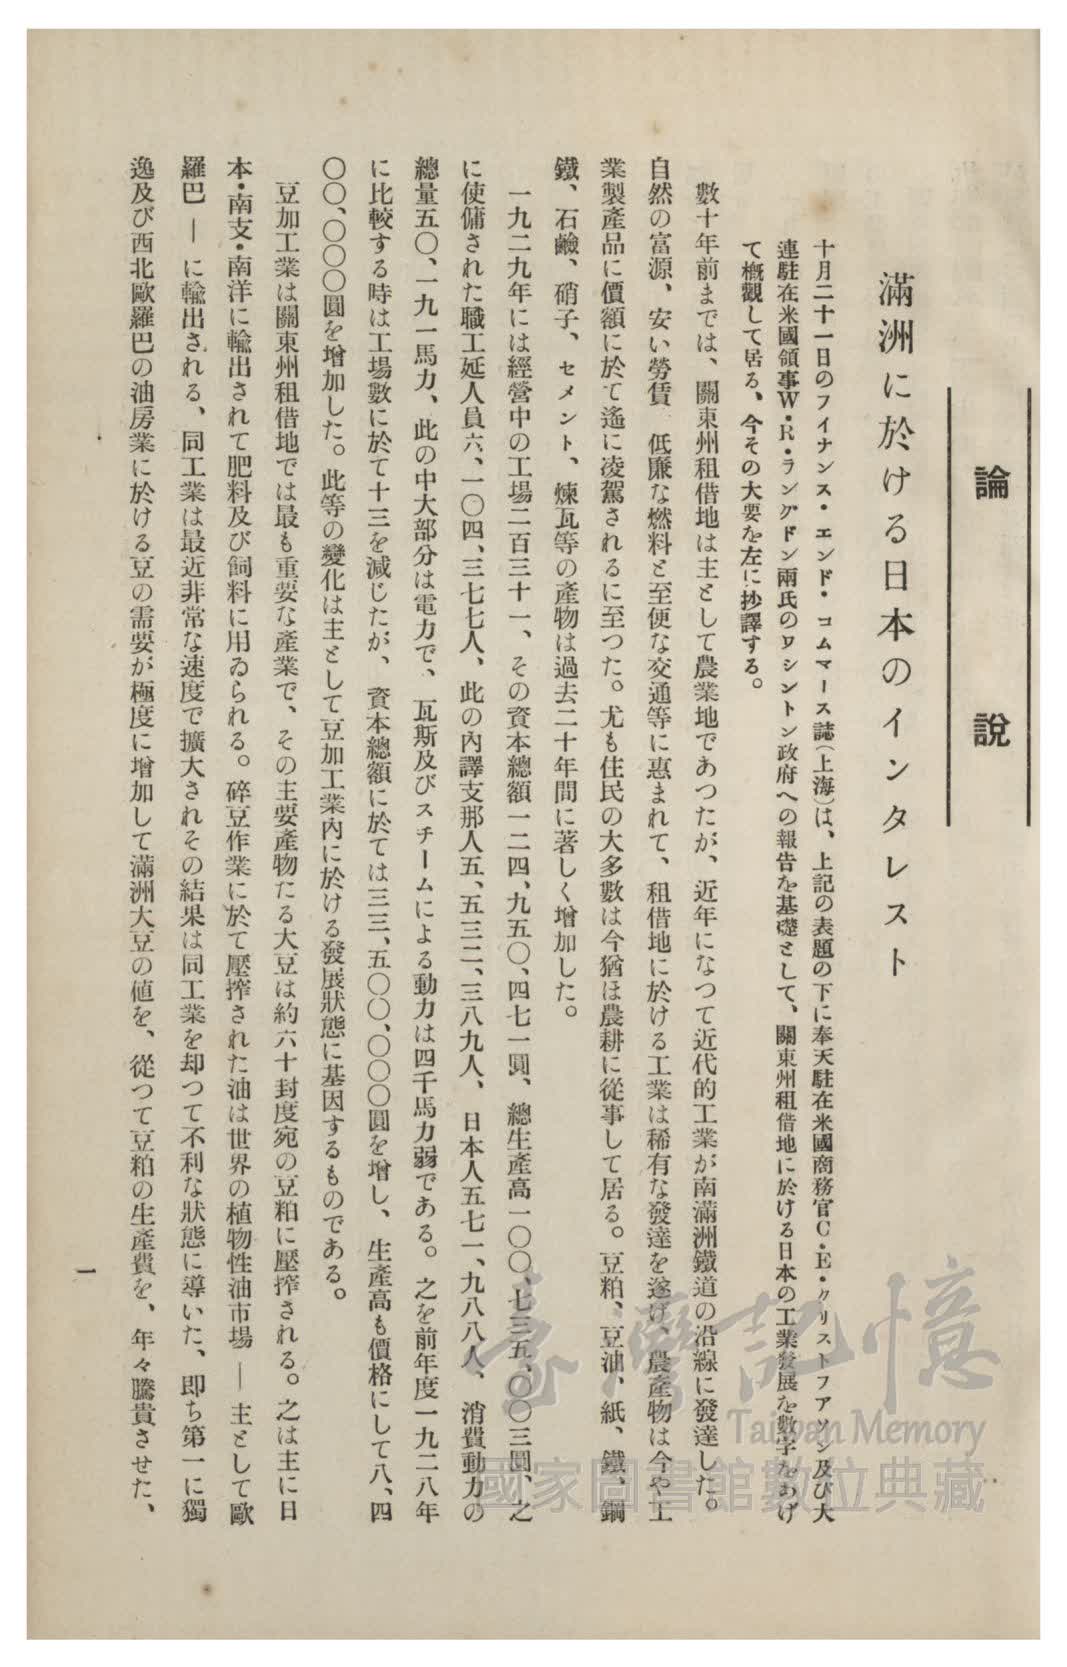 論說
滿洲に於ける日本のインタレスト
十月二十一日のフイナンス・エンド・コムマース誌(上海)は、上記の表題の下に奉天駐在米國商務官C・E・クリストフアソン及び大
連駐在米國領事W・R・ラングドン兩氏のワシントン政府への報告を基礎として、關東州租借地に於ける日本の工業發展を數字をあげ
て槪觀して居る、今その大要を左に抄譯する。
數十年前までは、關東州租借地は主として農業地であつたが、近年になつて近代的工業が南滿洲鐵道の沿線に發達した。
自然の富源、安い勞賃、低廉な燃料と至便な交通等に惠まれて、租借地に於ける工業は稀有な發達を遂げ、農產物は今や工
業製產品に價額に於て遙に凌駕されるに至つた。尤も住民の大多數は今猶ほ農耕に從事して居る。豆粕、豆油、紙、鐵、鋼
鐵、石鹼、硝子、セメント、煉瓦等の產物は過去二十年間に著しく增加した。
一九二九年には經營中の工場二百三十一、その資本總額一二四、九五〇、四七一圓、總生產高一〇〇、七三五、〇〇三圓、之
に使傭された職工延人員六、一〇四、三七七人、此の內譯支那人五、五三二、三八九人、日本人五七一、九八八人、消費動力の
總量五〇、一九一馬力、此の中大部分は電力で、瓦斯及びスチームによる動力は四千馬力弱である。之を前年度一九二八年
に比較する時は工場數に於て十三を減じたが、資本總額に於ては三三、五〇〇、〇〇〇圓を增し、生產高も價格にして八、四
〇〇、〇〇〇圓を增加した。此等の變化は主として豆加工業內に於ける發展狀態に基因するものである。
豆加工業は關東州租借地では最も重要な產業で、その主要產物たる大豆は約六十封度宛の豆粕に壓搾される。之は主に日
本・南支・南洋に輸出されて肥料及び飼料に用ゐられる。碎豆作業に於て壓搾された油は世界の植物性油市場―主として歐
羅巴―に輸出される、同工業は最近非常な速度で擴大されその結果は同工業を却つて不利な狀態に導いた、卽ち第一に獨
逸及び西北歐羅巴の油房業に於ける豆の需要が極度に增加して滿洲大豆の値を、從つて豆粕の生產費を、年々騰貴させた、
一
臺灣記憶
Taiwan Memory
國家圖書館數位典藏